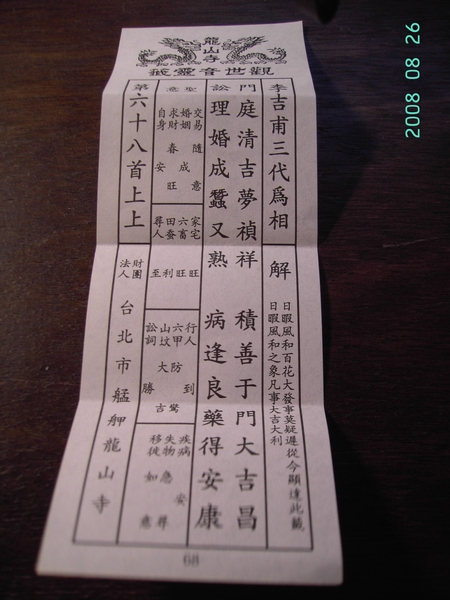 龍山寺
觀世音靈籤
李吉甫三代爲相
解
日暇風和百花大發事莫疑遲從今顯達此籤
日暇風和之象凡事大吉大利
門庭清吉夢禎祥 積善于門大吉昌
訟理婚成蠶又熟 病逢良藥得安康
聖意
交易 隨意
婚姻 成
求財 春旺
自身 安
家宅 旺
六畜 旺
田蚕 利
尋人 至
行人 到
六甲 防驚
山坟 大吉
訟詞 勝
疾病 安
失物 急尋
移徙 如意
第六十八首上上
財團法人 台北市艋舺龍山寺
68
2008 08 26